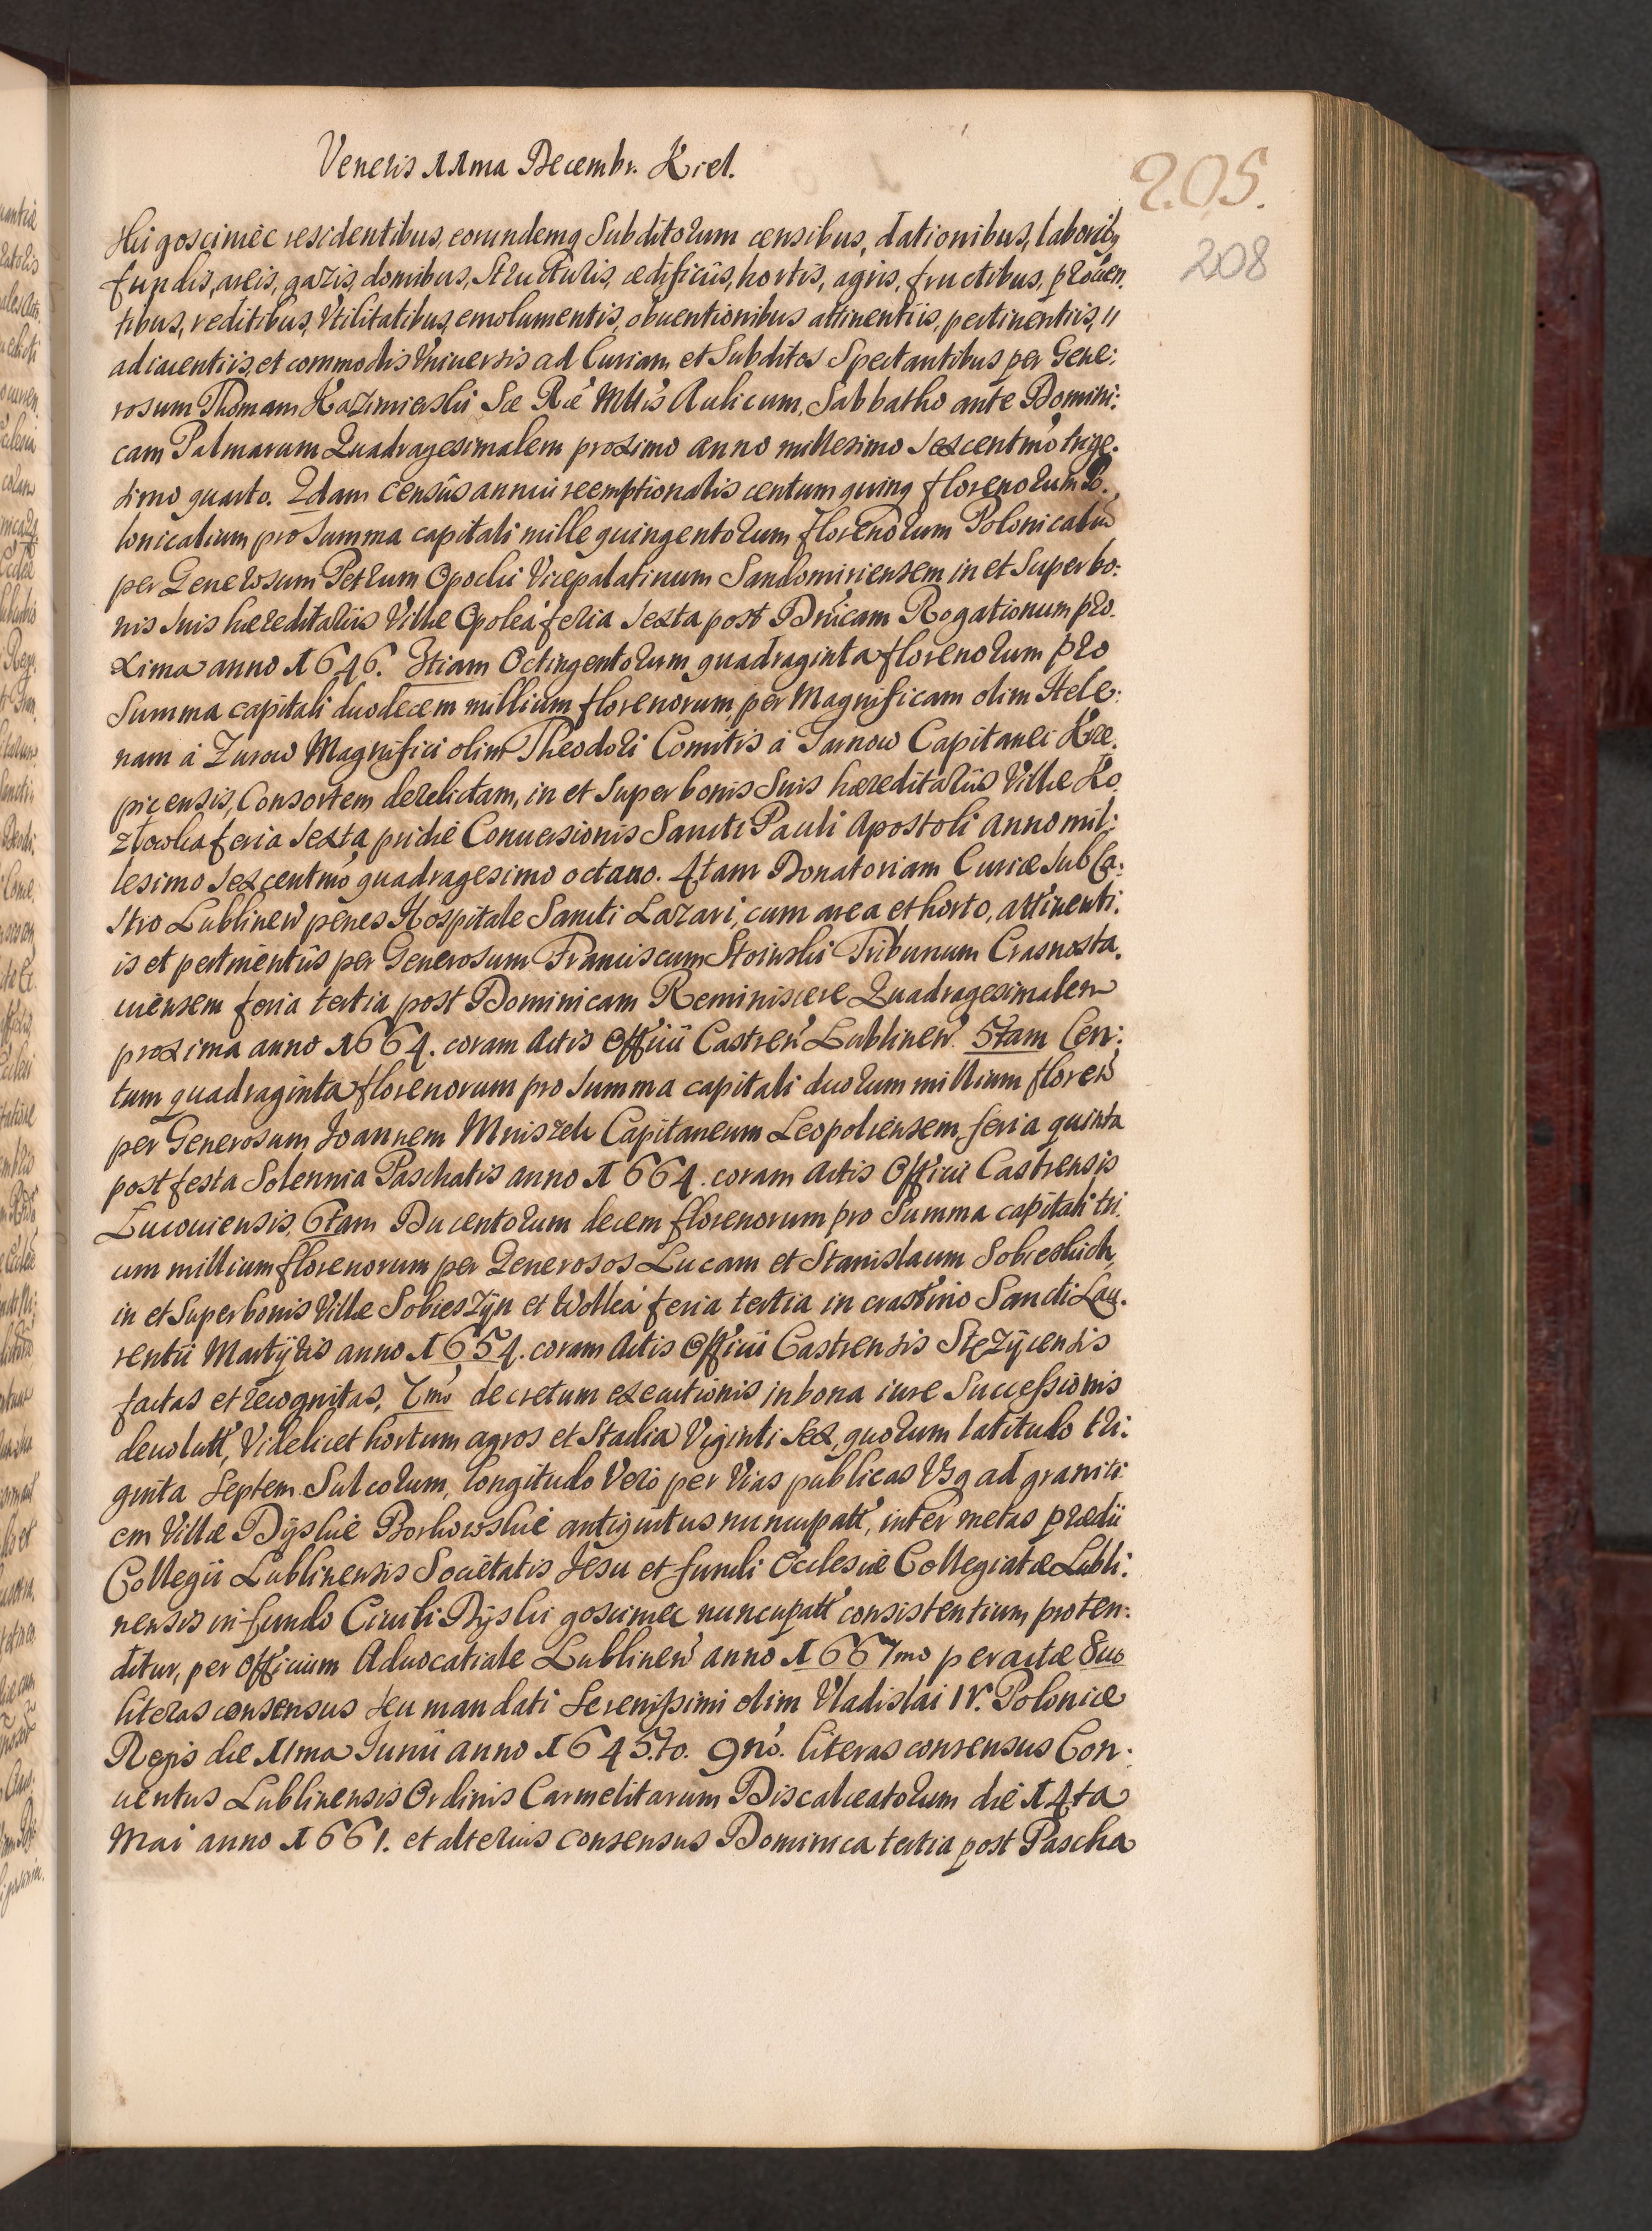 Veneris 11ma Decembr. Kiel.
205.
208
ski gosciniec residentibus, eorundemq Subditorum censibus, dationibus, laborib9
fundis, areis, gazis, domibus, Structuris, ædificiis, hortis, agris, fructibus, prouen,
tibus, reditibus, Vtilitatibus, emolumentis, obuentionibus attinentiis, pertinentiis, 11
adiacentiis, et commodis Vniuersis ad Curiam et Subditos Spectantibus per Gene:
rosum Thomam Kazimierski Sæ Ræ Mttis Aulicum, Sabbatho ante Domini:
cam Palmarum Quadragesimalem proximo anno millesimo sexcentmo trige.
simo quarto. 2dam Censûs annui reemptionalis centum quinq florenorum Po.
lonicalium pro summa capitali mille quingentorum florenorum Polonicaliu
per Generosum Petrum Opocki Vicepalatinum Sandomiriensem in et Super bo:
nis suis hæreditariis Villæ Opole á feria sexta post Dnicam Rogationum pro.
xima anno 1646. 3tiam Octingentorum quadraginta florenorum pro
Summa capitali duodecem millium florenorum, per Magnificam olim Hele:
nam á Zurow Magnifici olim Theodori Comitis á Tarnow Capitanei Krze,
picensis, Consortem derelictam, in et Super bonis Suis hæreditariis Villæ Ko
złowka feria sexta pridie Conuersionis Sancti Pauli Apostoli anno mil:
lesimo sexcentmo quadragesimo octauo. 4tam Donatoriam Curiæ sub Ca:
stro Lublinen penes Hospitale Sancti Lazari, cum area et horto, attinenti:
is et pertinentiis per Generosum Franciscum Stoinski Tribunum Crasnosta.
uiensem feria tertia post Dominicam Reminiscere Quadragesimalem
proxima anno 1664. coram Actis Officii Castren Lublinen. 5tam Cen:
tum quadraginta florenorum pro summa capitali duorum millium floren
per Generosum Joannem Mniszek Capitaneum Leopoliensem, feria quinta
post festa Solennia Paschatis anno 1664. coram Actis Officii Castrensis
Lucouiensis, 6tam Ducentorum decem florenorum pro Summa capitali tri
um millium florenorum per Generosos Lucam et Stanislaum Sobieskich
in et Super bonis Villæ Sobieszyn et Wolka feria tertia in crastino Sancti Lau.
rentii Martÿris anno 1654. coram Actis Officii Castrensis Stęzÿcensis
factas et recognitas, 7mo decretum executionis in bona iure Successionis
deuolutt, Videlicet hortum agros et Stadia Viginti sex, quorum latitudo tri:
ginta septem Sulcorum, longitudo Vero per Vias publicas Vsq ad granici:
em Villæ Dÿskie Borkowskie antiquitus nuncupatt, inter metas prædii
Collegii Lublinensis Societatis Jesu et fundi Ecclesiæ Collegiatæ Lubli:
nensis in fundo Ciuili Dÿski gosciniec nuncupatt consistentium, proten:
ditur, per Officium Aduocatiale Lublinen anno 1667mo peractæ 8uo
literas consensus seu mandati Serenissimi olim Vladislai IV. Poloniæ
Regis die 11ma Junii anno 1645.to. 9no. literas consensus Con:
uentus Lublinensis Ordinis Carmelitarum Discalceatorum die 14ta
Mai anno 1661. et alterius consensus Dominica tertia post Pascha